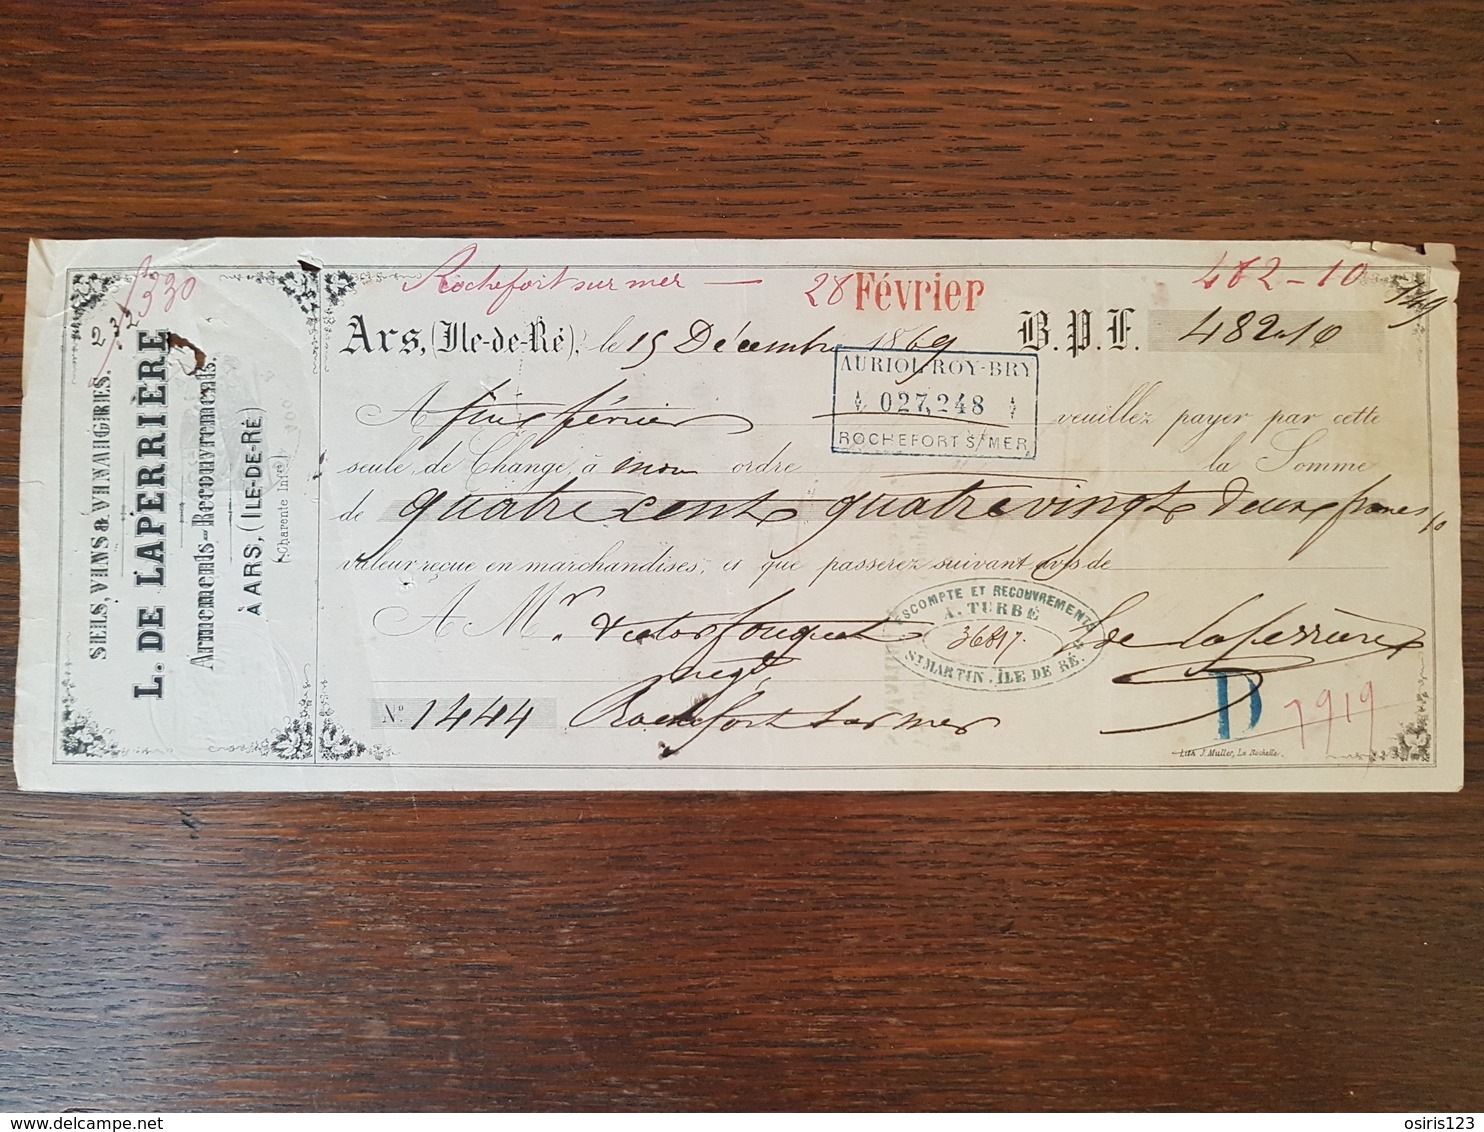 SELS, VINS & VINAIGRES.
L. DE LAPERRIÈRE
Armements-Recouvrements.
À ARS, (ILE-DE-RÉ)
(Charente Infre.)
Rochefort sur mer — 28 Février 482-10
Ars, (Ile-de-Ré), le 15 Décembre 1869 B.P.F. 482.10
AURIOL, ROY-BRY
027,248
ROCHEFORT S/MER
A fin février veuillez payer par cette
seule de Change, à mon ordre la Somme
de quatre cent quatre vingt deux francs 10
valeur reçue en marchandises, et que passerez suivant avis de
A Mr. Victor Fouquet De Laperrière
négt
ESCOMPTE ET RECOUVREMENTS
A. TURBÉ
36817.
ST MARTIN, ILE DE RÉ.
No. 1444 Rochefort sur mer
D 7919
Lith. J. Muller, La Rochelle.
osiris123